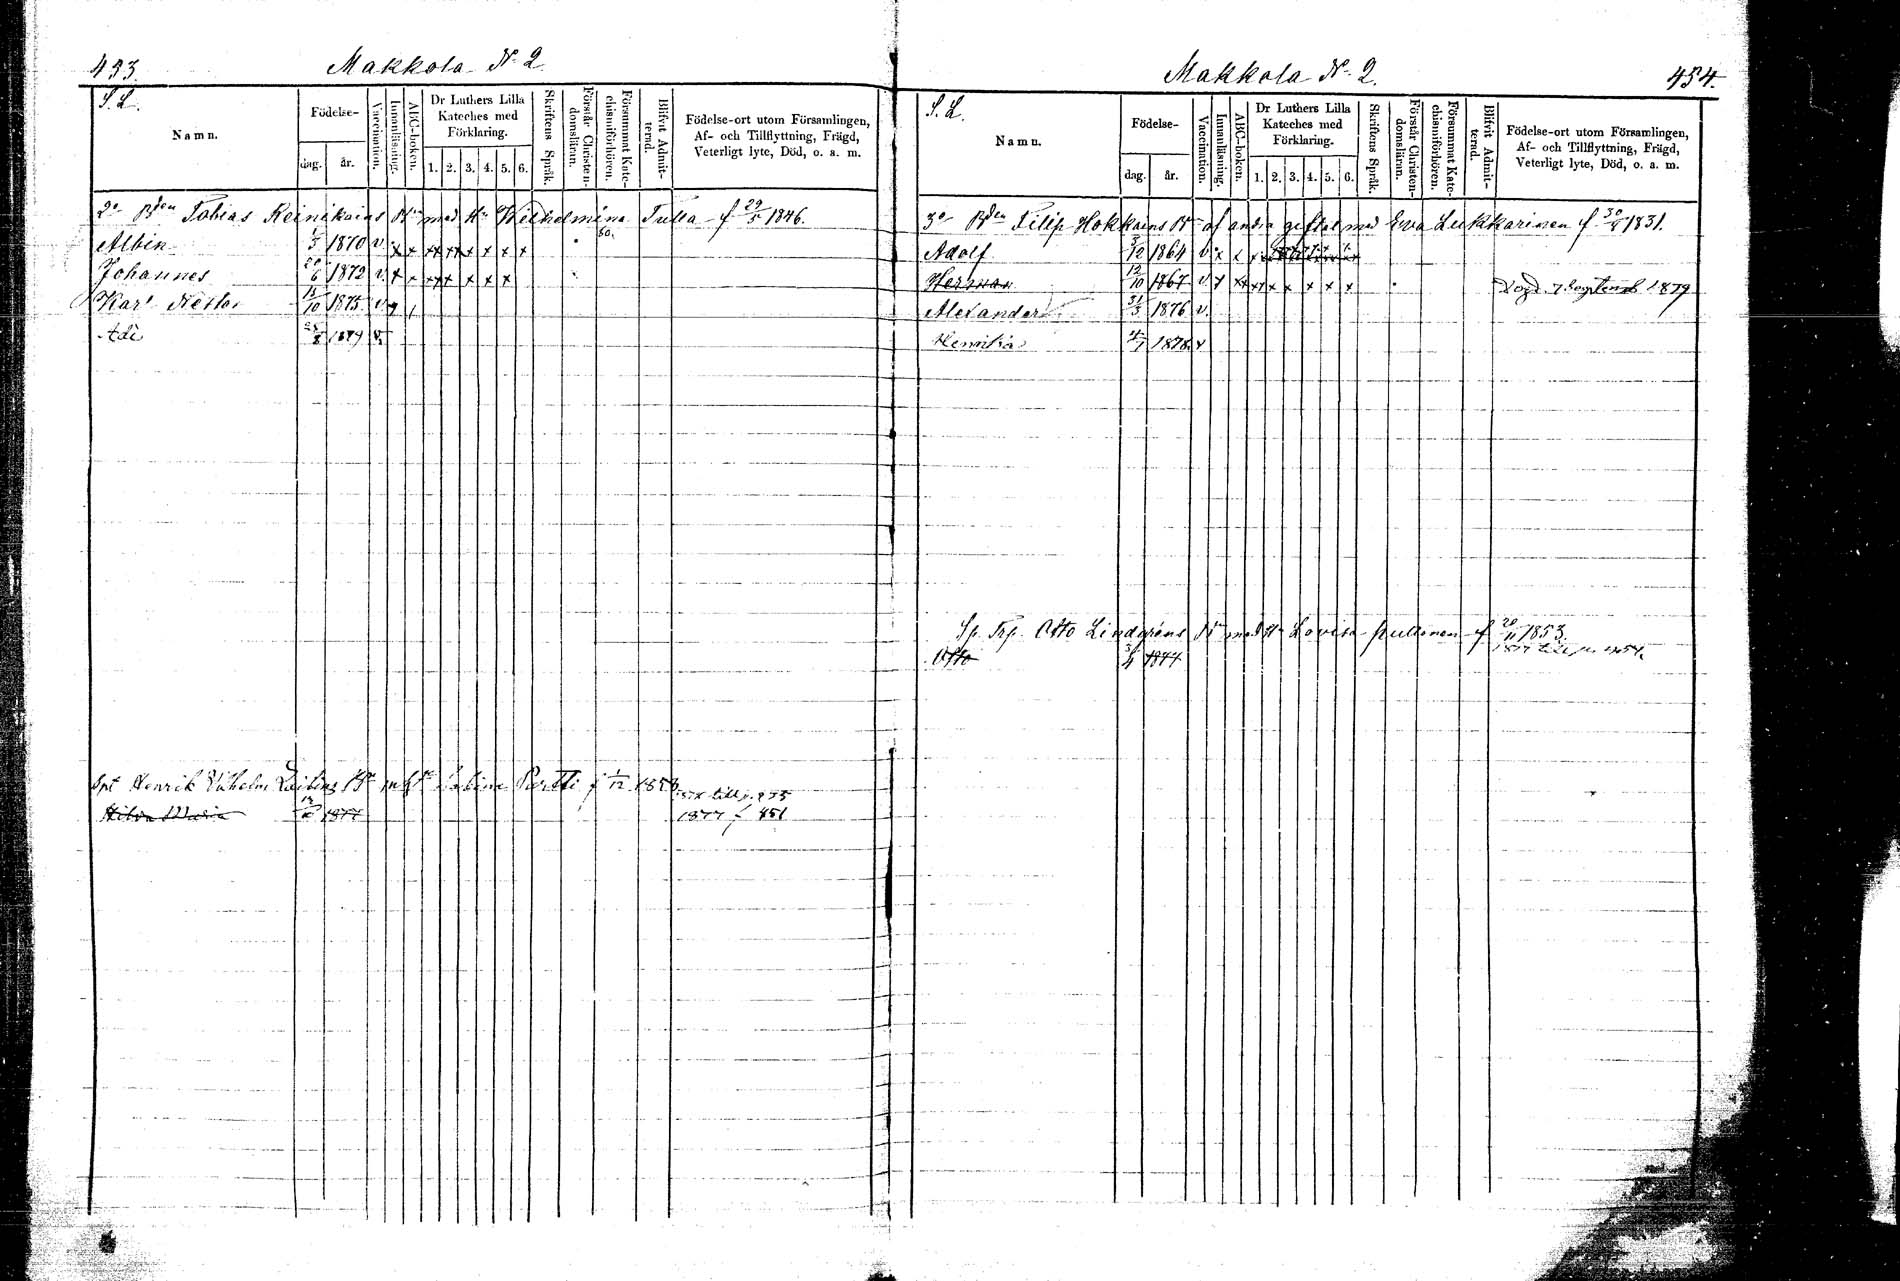 453.
Makkola № 2
S. L.
Namn.
Födelse-
dag.
år.
Vaccination.
Innanläsning.
ABC-boken.
Dr Luthers Lilla
Kateches med
Förklaring.
1. 2. 3. 4. 5. 6.
Skriftens Språk.
Förstår Christen-
domsläran.
Försummat Kate-
chismiförhören.
Blifvit Admit-
terad.
Födelse-ort utom Församlingen,
Af- och Tillflyttning, Frägd,
Veterligt lyte, Död, o. a. m.
2o Bden Tobias Reinikains Bn med Hu Wilhelmina Tulla f 29/5 1846.
80.
Albin 1/3 1870 v. x x xx xx x x x x
Johannes 20/6 1872 v. x x x x x x x x
Karl Nestor 1875 v.
1879 v
Spt Henrik Vilhelm 1/12
till p. 975
Hilda Maria 1877 1877 f 451
Makkola № 2.
454.
S. L.
Namn.
Födelse-
dag.
år.
Vaccination.
Innanläsning.
ABC-boken.
Dr Luthers Lilla
Kateches med
Förklaring.
1. 2. 3. 4. 5. 6.
Skriftens Språk.
Förstår Christen-
domsläran.
Försummat Kate-
chismiförhören.
Blifvit Admit-
terad.
Födelse-ort utom Församlingen,
Af- och Tillflyttning, Frägd,
Veterligt lyte, Död, o. a. m.
3o Bden Filip Hokkains Bn af andra giftet med Eva Lukkarinen f. 30/8 1831.
Adolf 3/12 1864 v x x
Herman 12/10 1867 v. x xx xx x x x x x 7 September 1879
Alexander 31/3 1876 v.
Henrika 1878 v
Sp. Trp. Otto Lindgréns Bn med Hu Lovisa Pullonen f 20/11 1853.
Otto 1877